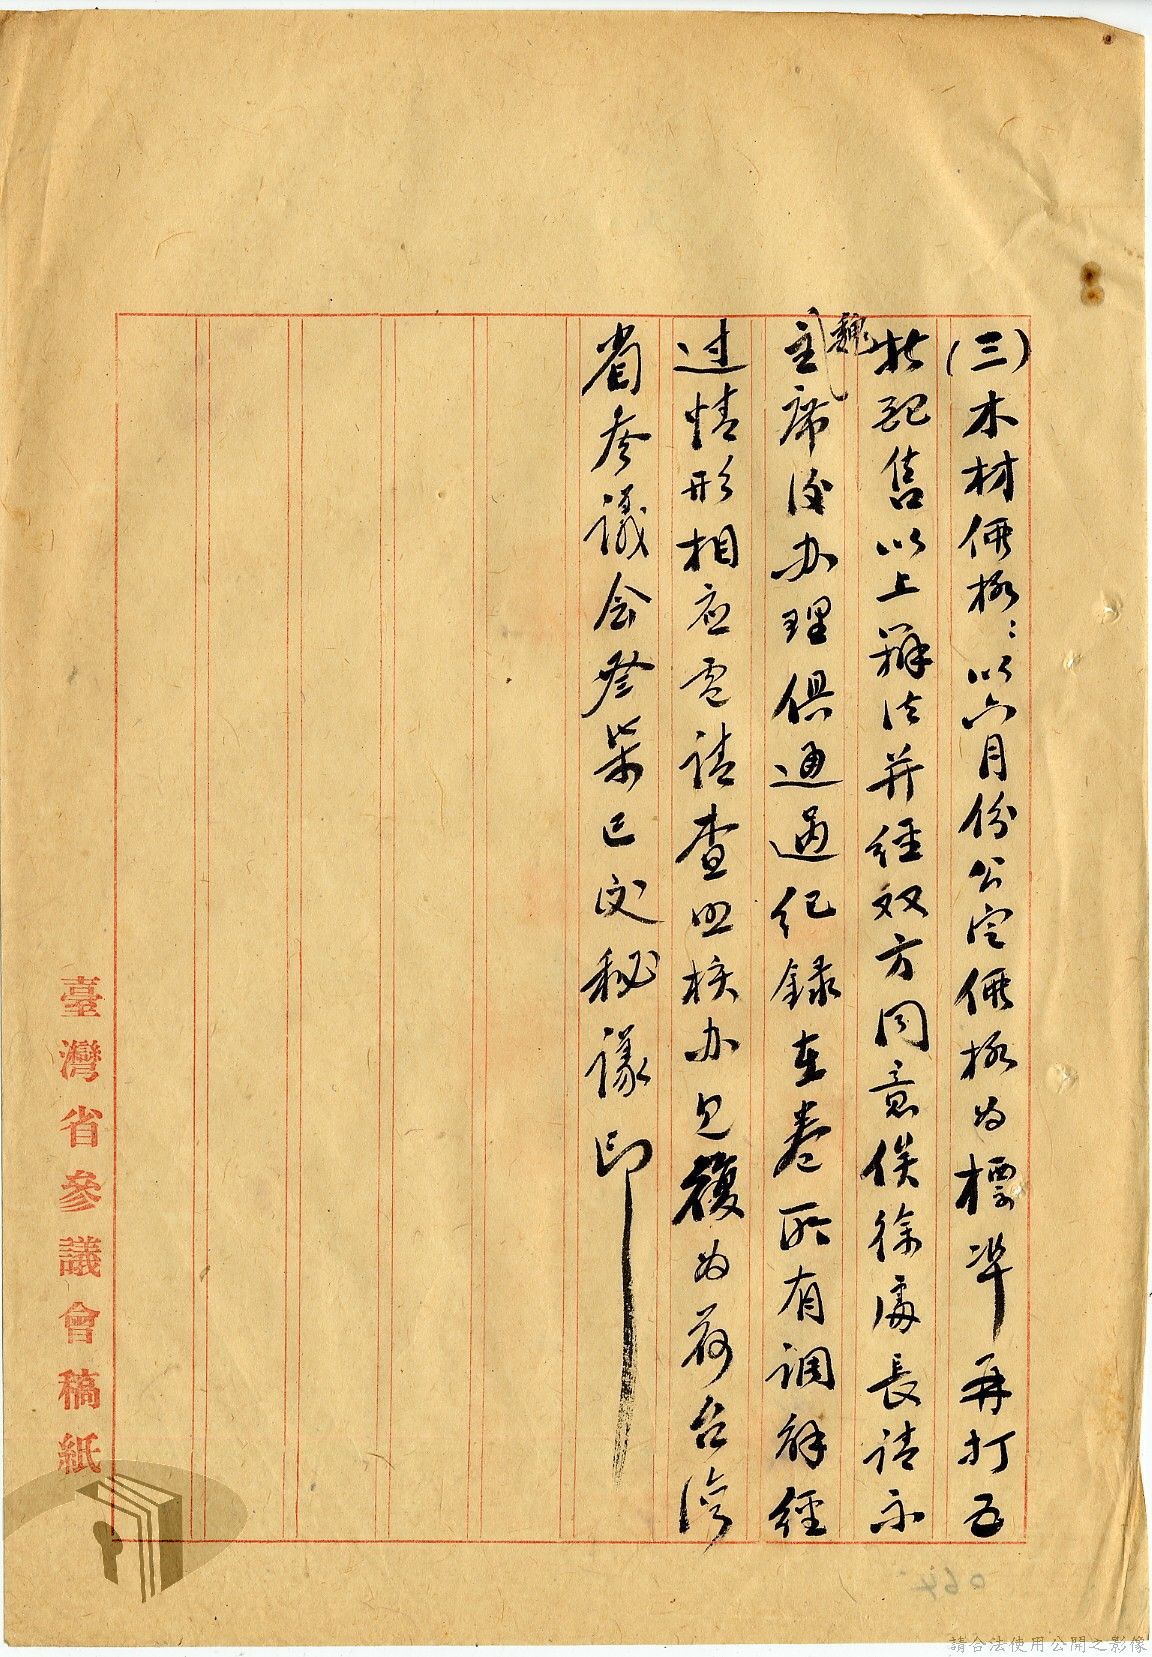 (三)木材価格：以六月份公定価格为標準再打五
折配售以上辦法并經双方同意俟徐處長請示
魏
主席後办理俱通過纪錄在卷所有調解經
过情形相应電請查照核办見復为荷台灣
省参議会叁柒已 秘議印
臺灣省參議會稿紙
064
請合法使用公開之影像